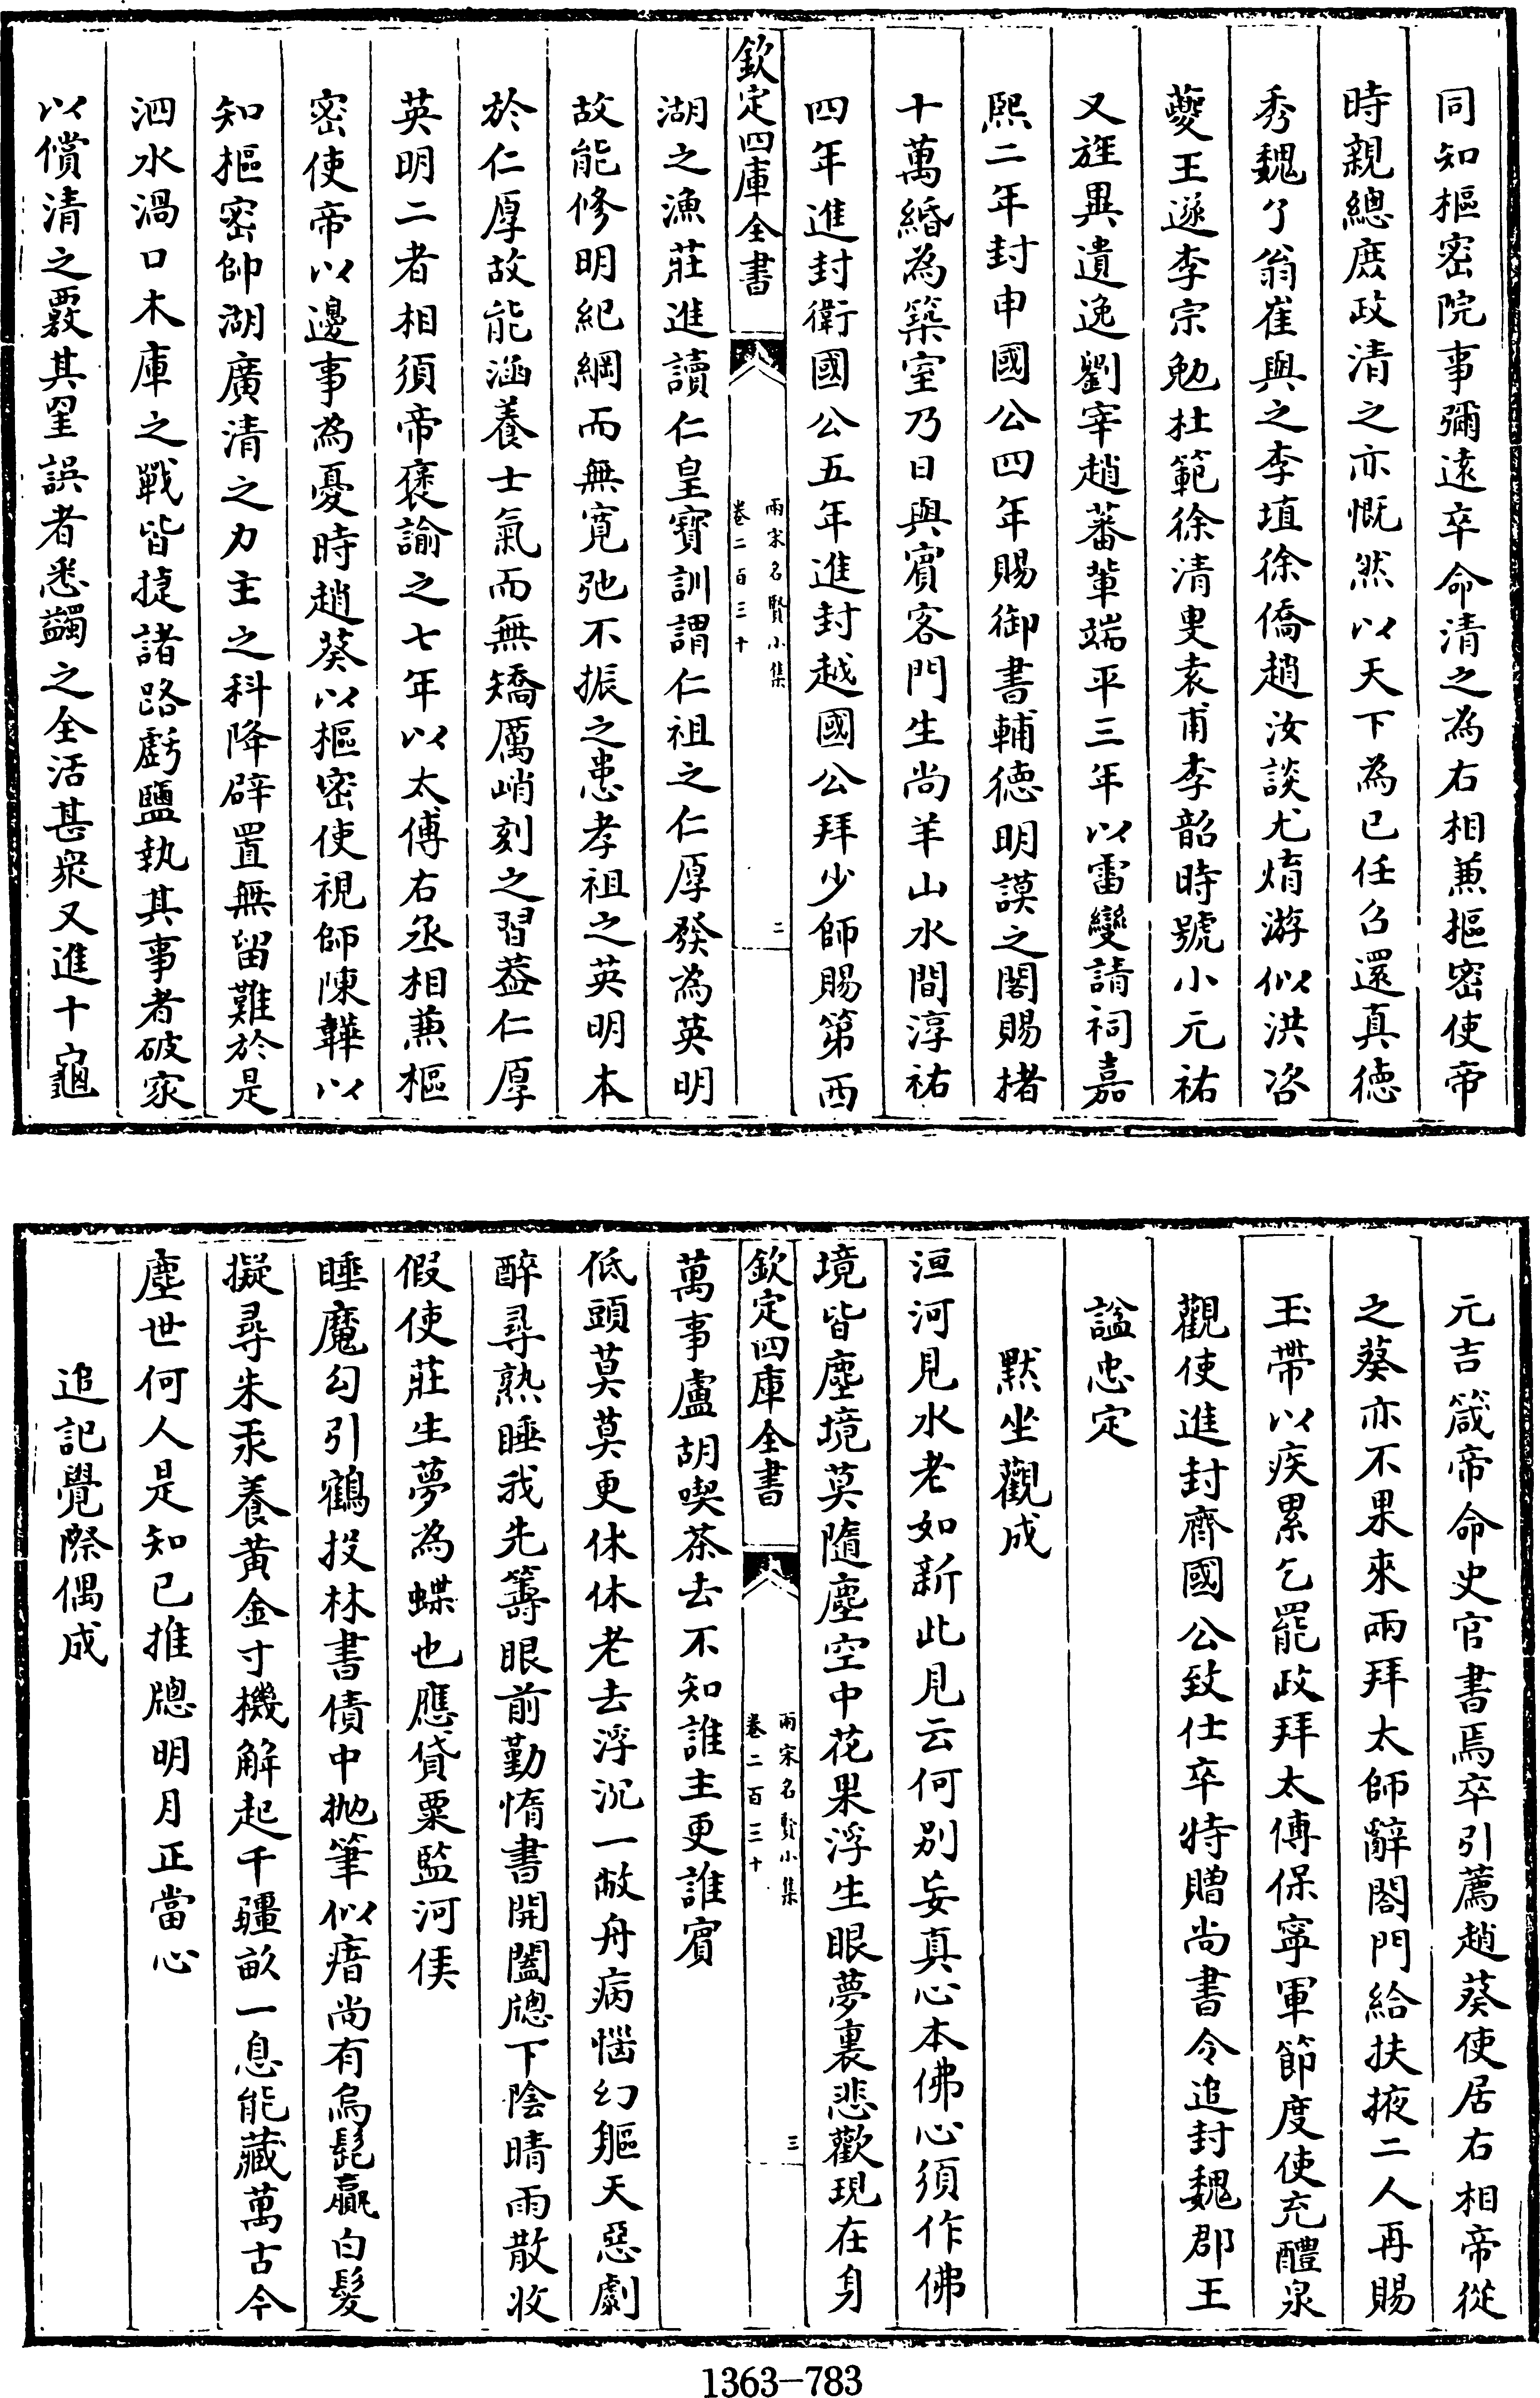 同知樞密院事彌逺卒命清之為右相兼樞密使帝
時親總庶政清之亦慨然以天下為已任召還真德
秀魏了翁崔與之李埴徐僑趙汝談尤焴游似洪咨
夔王遂李宗勉杜範徐清叟袁甫李韶時號小元祐
又旌異遺逸劉宰趙蕃輩端平三年以雷變請祠嘉
熙二年封申國公四年賜御書輔德明謨之閣賜楮
十萬緡為築室乃日與賓客門生尚羊山水間淳祐
四年進封衛國公五年進封越國公拜少師賜第西
欽定四庫全書
兩宋名賢小集
卷二百三十
二
湖之漁莊進讀仁皇寶訓謂仁祖之仁厚發為英明
故能修明紀綱而無寛弛不振之患孝祖之英明本
於仁厚故能涵養士氣而無矯厲峭刻之習葢仁厚
英明二者相須帝褒諭之七年以太傅右丞相兼樞
密使帝以邊事為憂時趙葵以樞密使視師陳韡以
知樞密帥湖廣清之力主之科降辟置無留難於是
泗水渦口木庫之戰皆捷諸路虧鹽執其事者破家
以償清之覈其罣誤者悉蠲之全活甚衆又進十龜
元吉箴帝命史官書焉卒引薦趙葵使居右相帝從
之葵亦不果來兩拜太師辭閤門給扶掖二人再賜
玉帶以疾累乞罷政拜太傅保寧軍節度使充醴泉
觀使進封齊國公致仕卒特贈尚書令追封魏郡王
諡忠定
黙坐觀成
洹河見水老如新此見云何别妄真心本佛心須作佛
境皆塵境莫隨塵空中花果浮生眼夢裏悲歡現在身
欽定四庫全書
兩宋名賢小集
卷二百三十
三
萬事盧胡喫茶去不知誰主更誰賓
低頭莫莫更休休老去浮沉一敝舟病惱幻軀天惡劇
醉尋熟睡我先籌眼前勤惰書開闔牕下陰晴雨散收
假使莊生夢為蝶也應貸粟監河侯
睡魔勾引鶴投林書債中抛筆似瘖尚有烏髭羸白髪
擬尋朱汞養黄金寸機解起千疆畝一息能藏萬古今
塵世何人是知已推牕明月正當心
追記覺際偶成
1363-783